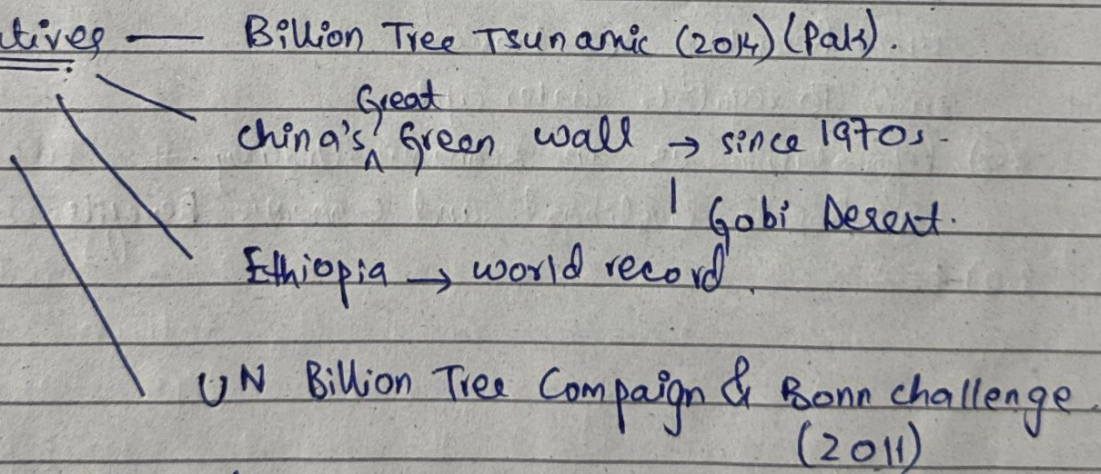 tives — Billion Tree Tsunamic (2014) (Pak).
Great
China's ^ Green wall → since 1970s.
Gobi Desert.
Ethiopia → world record.
UN Billion Tree Compaign & Bonn challenge.
(2011)